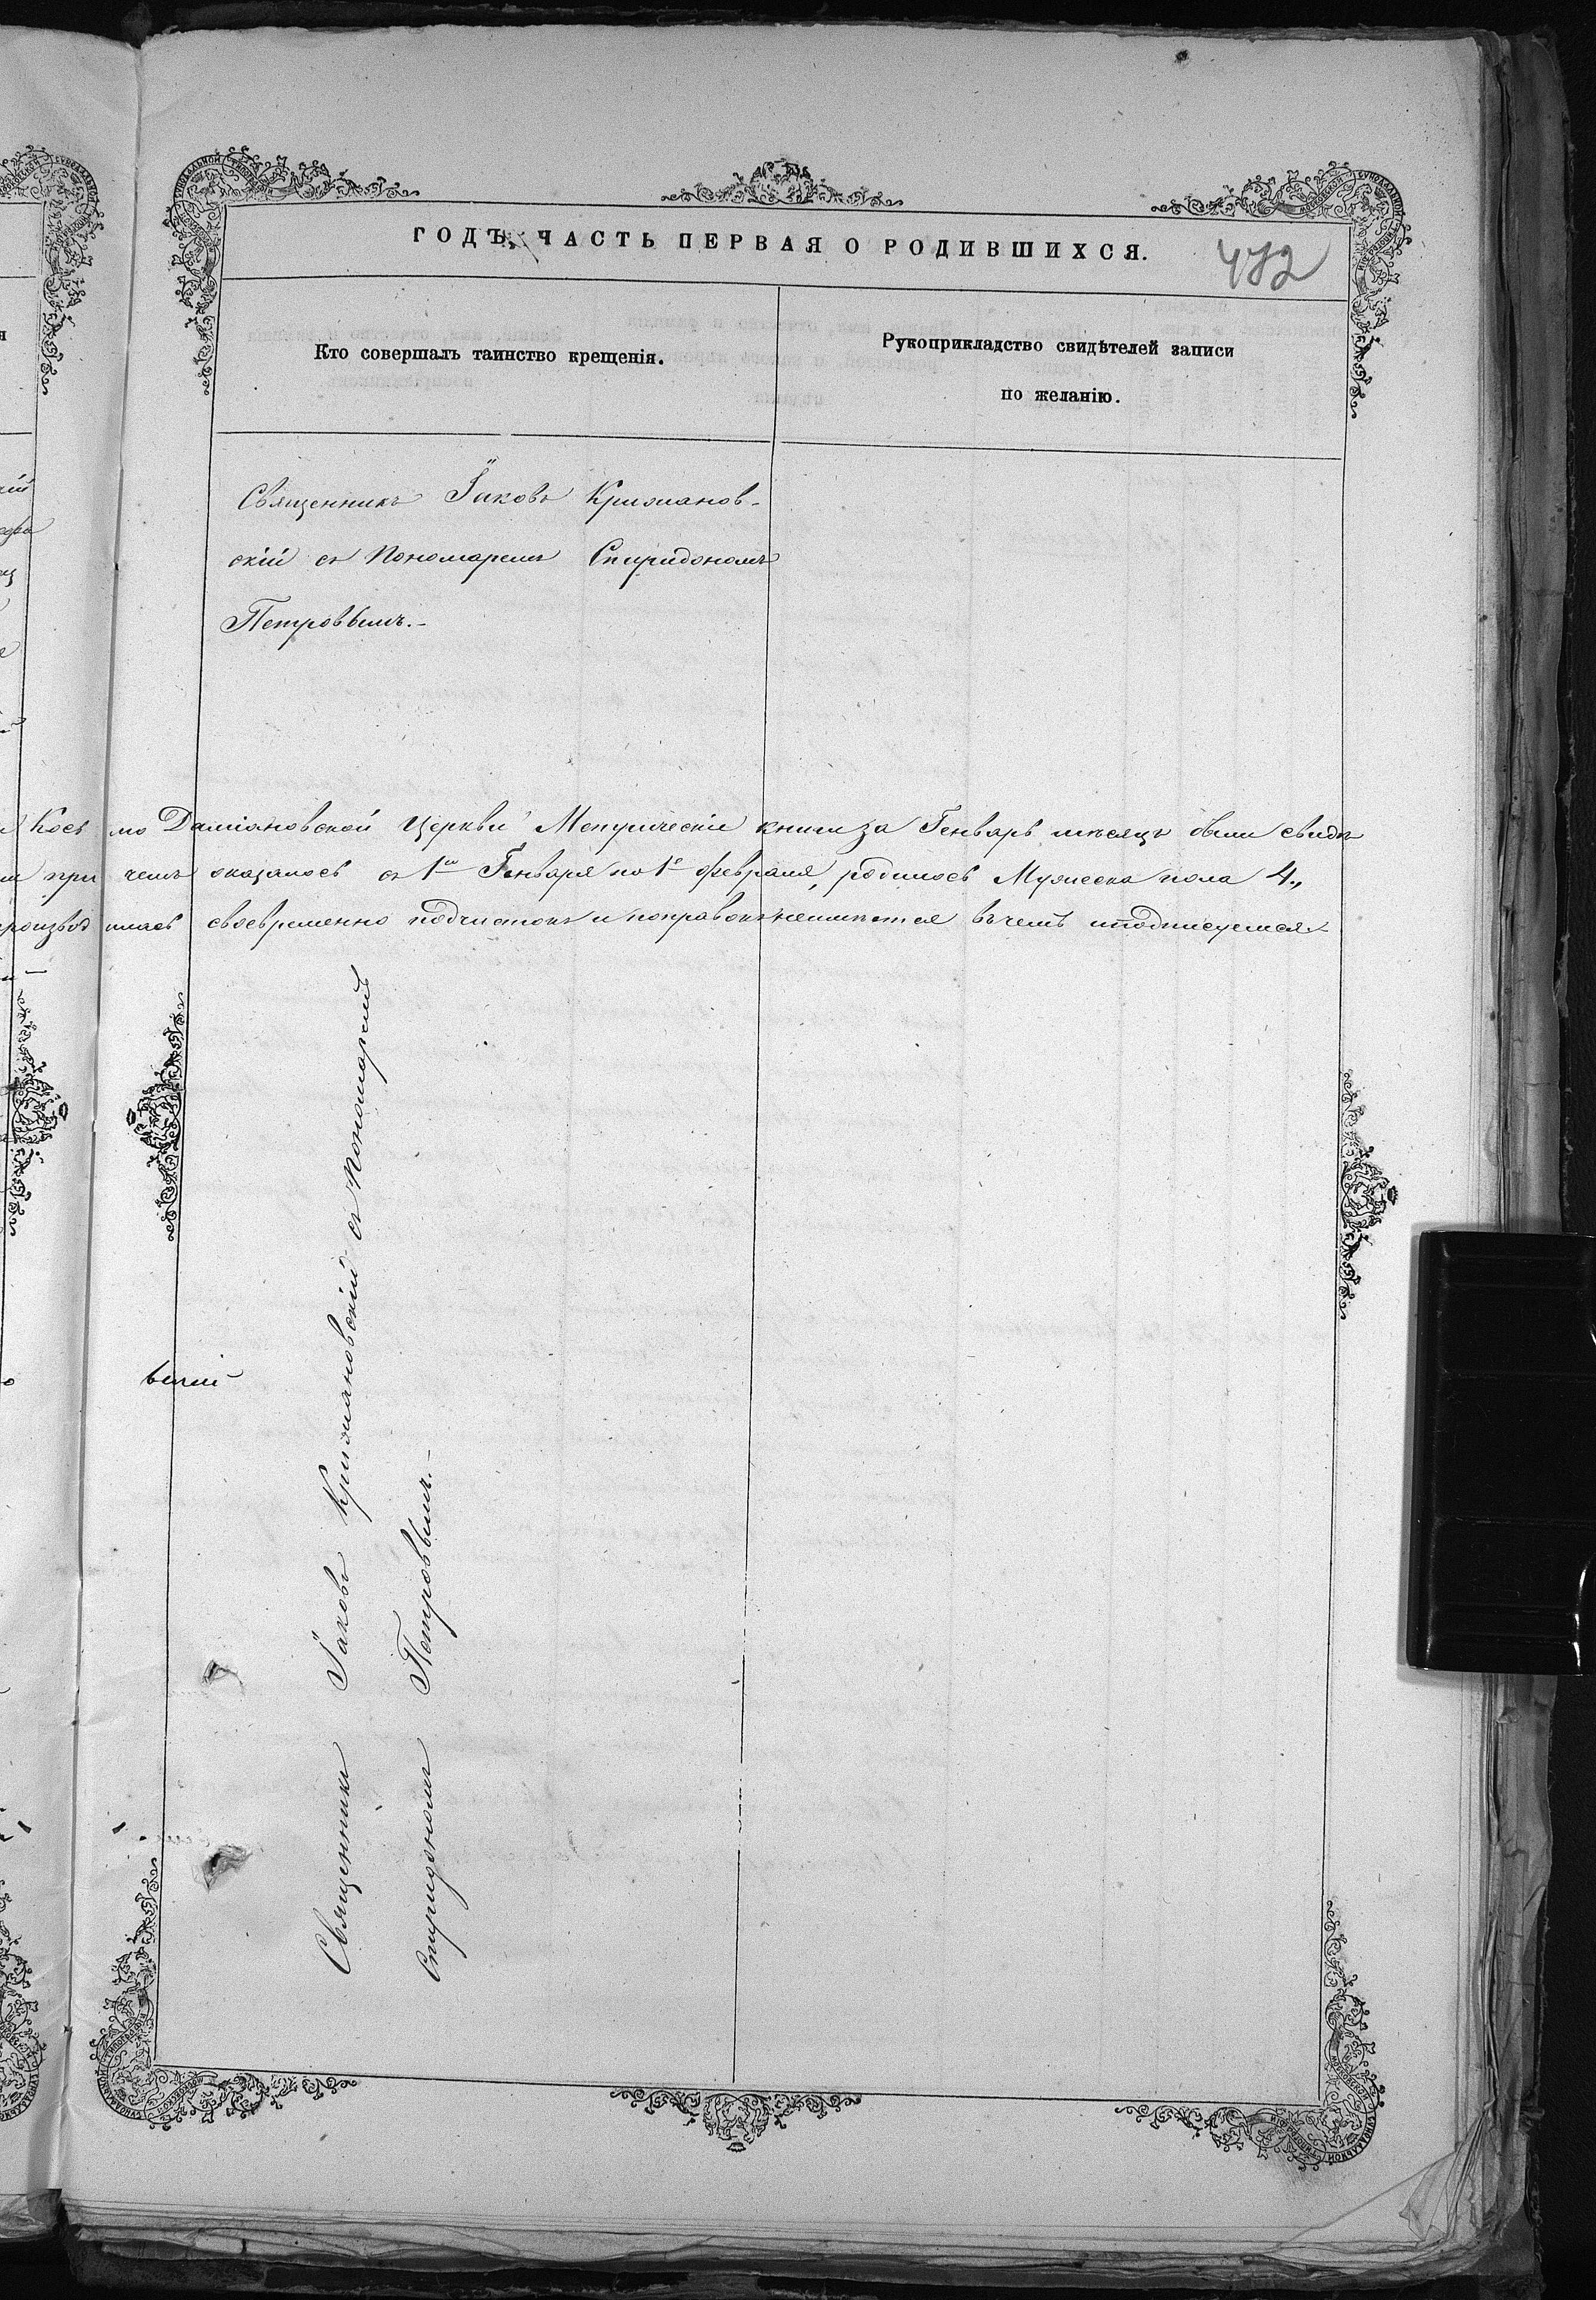 ГОДЪ, ЧАСТЬ ПЕРВАЯ О РОДИВШИХСЯ.
472
Кто совершалъ таинство крещенія.
Рукоприкладство свидѣтелей записи
по желанію.
Священникъ Іаковъ Крижанов-
скій съ Пономаремъ Спиридономъ
Петровымъ.-
Косьмо Даміановской Церкви Метрическіе книги за Генварь мѣсяцъ были свидѣ
при чемъ оказалось съ 1го Генваря по 1е Февраля, родилось Мужеска пола 4,,
производилась своевременно подчистокъ и поправокъ неимѣется въ чемъ и подписуемся
Священникъ Іаковъ Крижановскій съ Пономаремъ
Спиридономъ Петровымъ.-